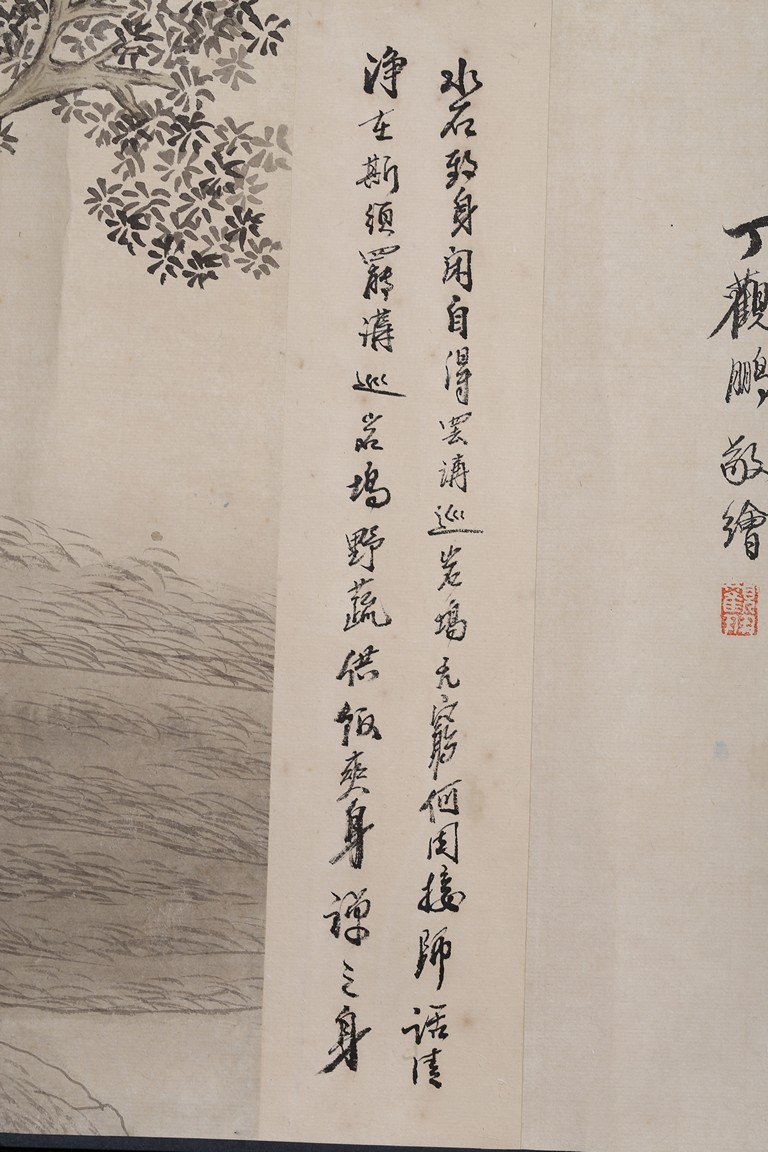 丁觀鵬敬繪
水石致身闲自得罢講巡岩塢无窮何因接師話清
淨在斯须罷講巡岩塢野蔬供饭爽身禅之身